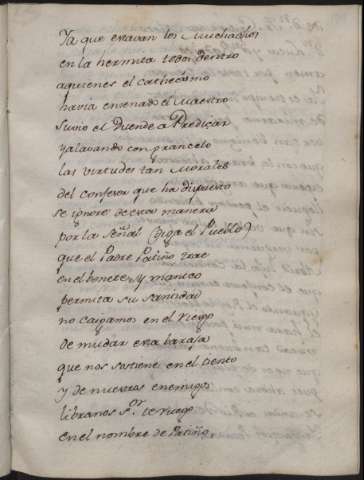 Ya que estavan los Muchachos
en la hermita todos dentro
aquienes el cathecismo
havia enseñado el Maestro
Suvio el Duende a Predicar
y alavando con
las virtudes tan Morales
del confesor que ha dispuesto
se ignore de esta manera
por la Señal (diga el Pueblo)
que el Padre Patiño trae
en el bonete, y manteo
permita su santidad
no caigamos en el riesgo
de mudar esta baraja
que nos sostiene en el tiento
y de nuestros enemigos
libranos S.or te ruego
en el nombre de Patiño